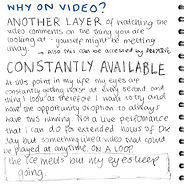 WHY ON VIDEO?
ANOTHER LAYER of watching the
video comments on the thing you are
looking at - yourself might be meeting
away. also this can be accessed by
CONSTANTLY AVAILABLE
At this point in my life my eyes are
constantly getting tears at every second and
thing I look at therefore I have to try and
have the opportunity over time to always
have this running. Not a live performance
that I can do for extended hours of the
day but something like a video that could
be played at anytime ON A LOOP
the ice melts but my eyes keep
going.